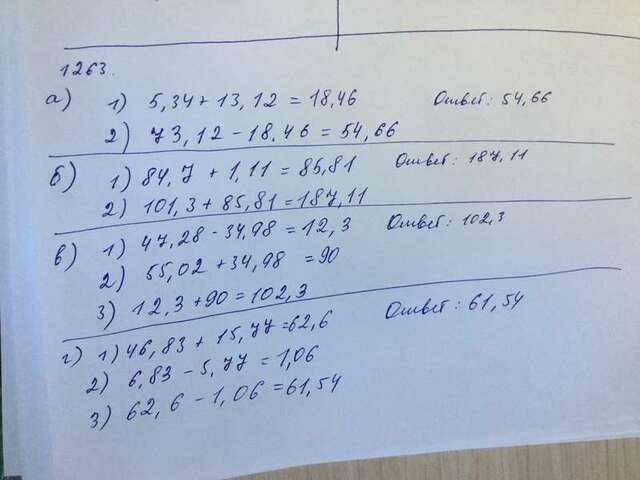 1263.
а) 1) 5,34 + 13,12 = 18,46 Ответ: 54,66
2) 73,12 - 18,46 = 54,66
б) 1) 84,7 + 1,11 = 85,81 Ответ: 187,11
2) 101,3 + 85,81 = 187,11
в) 1) 47,28 - 34,98 = 12,3 Ответ: 102,3
2) 55,02 + 34,98 = 90
3) 12,3 + 90 = 102,3
г) 1) 46,83 + 15,77 = 62,6 Ответ: 61,54
2) 6,83 - 5,77 = 1,06
3) 62,6 - 1,06 = 61,54